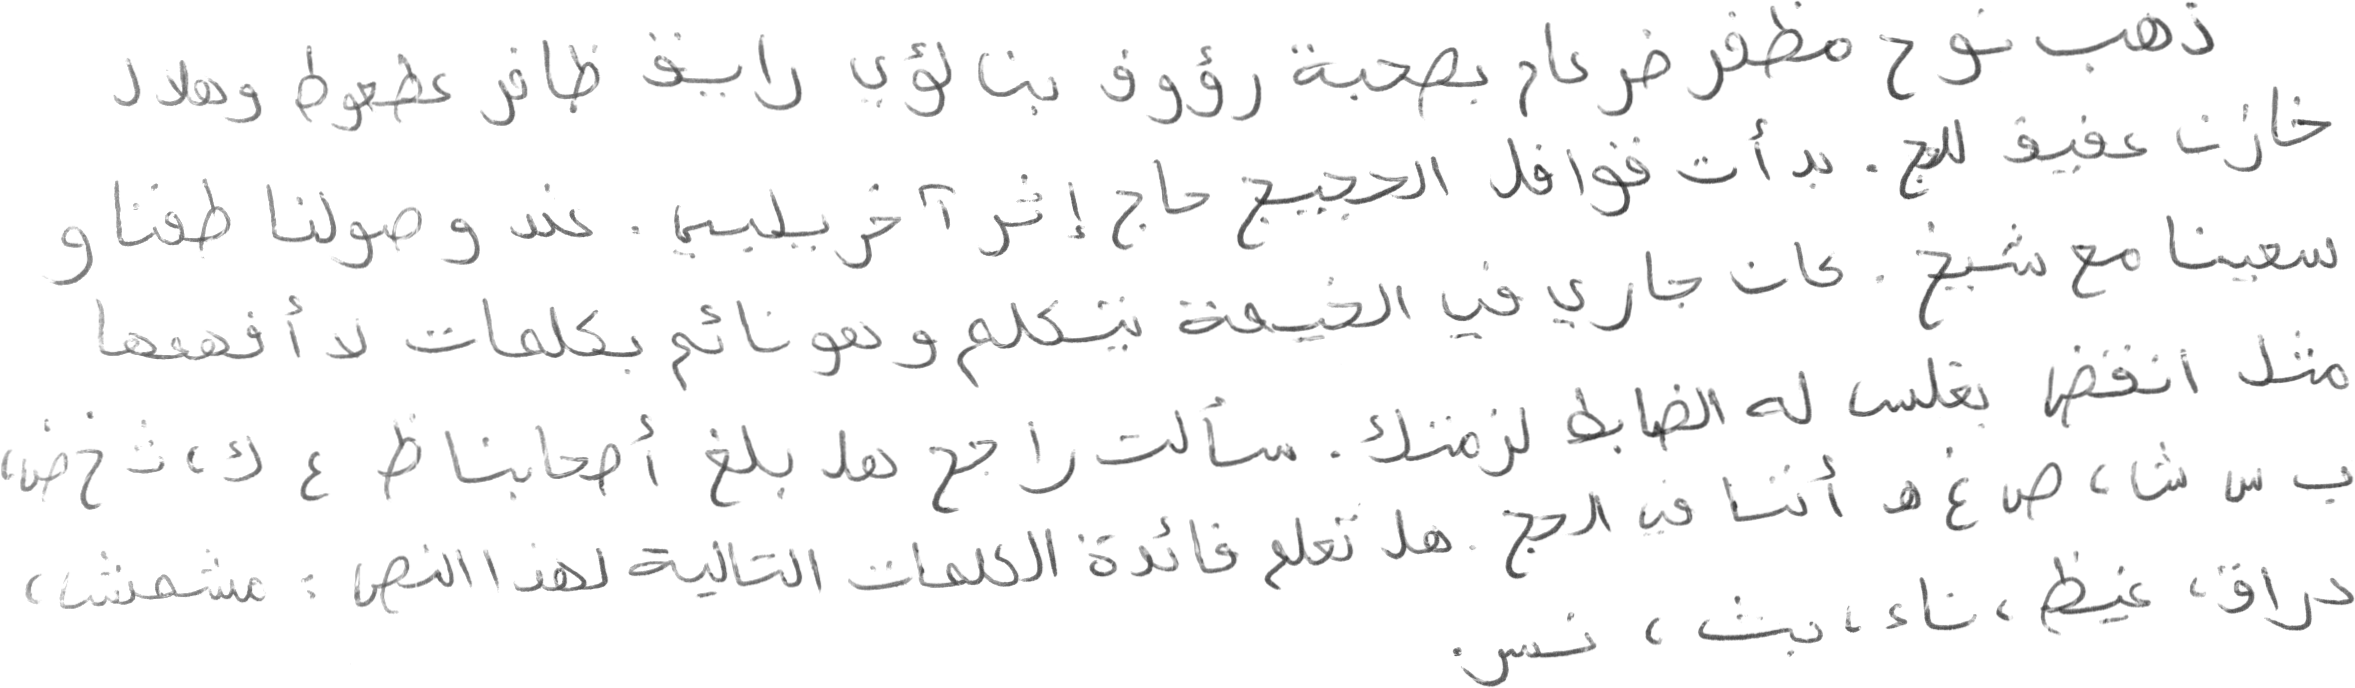 ذهب نوح مظفر ضرغام بصحبة رؤوف بن لؤي رايق ظافر عطعوط وهلال
خازن عفيف للحج. بدأت قوافل الحجيج حاج إثر آخر يلبي. عند وصولنا طفنا و
سعينا مع شيخ. كان جاري في الخيمة يتكلم وهو نائم بكلمات لا أفهمها
مثل انقض بغلس له الضابط لزمتك. سألت راجح هل بلغ أصحابنا ظ ء ك، ث خ ض،
ب س ش، ص غ ه أننا في الحج. هل تعلم فائدة الكلمات التالية لهذا النص: مشمش،
دراق، غيظ، ناء، بث، نسر.